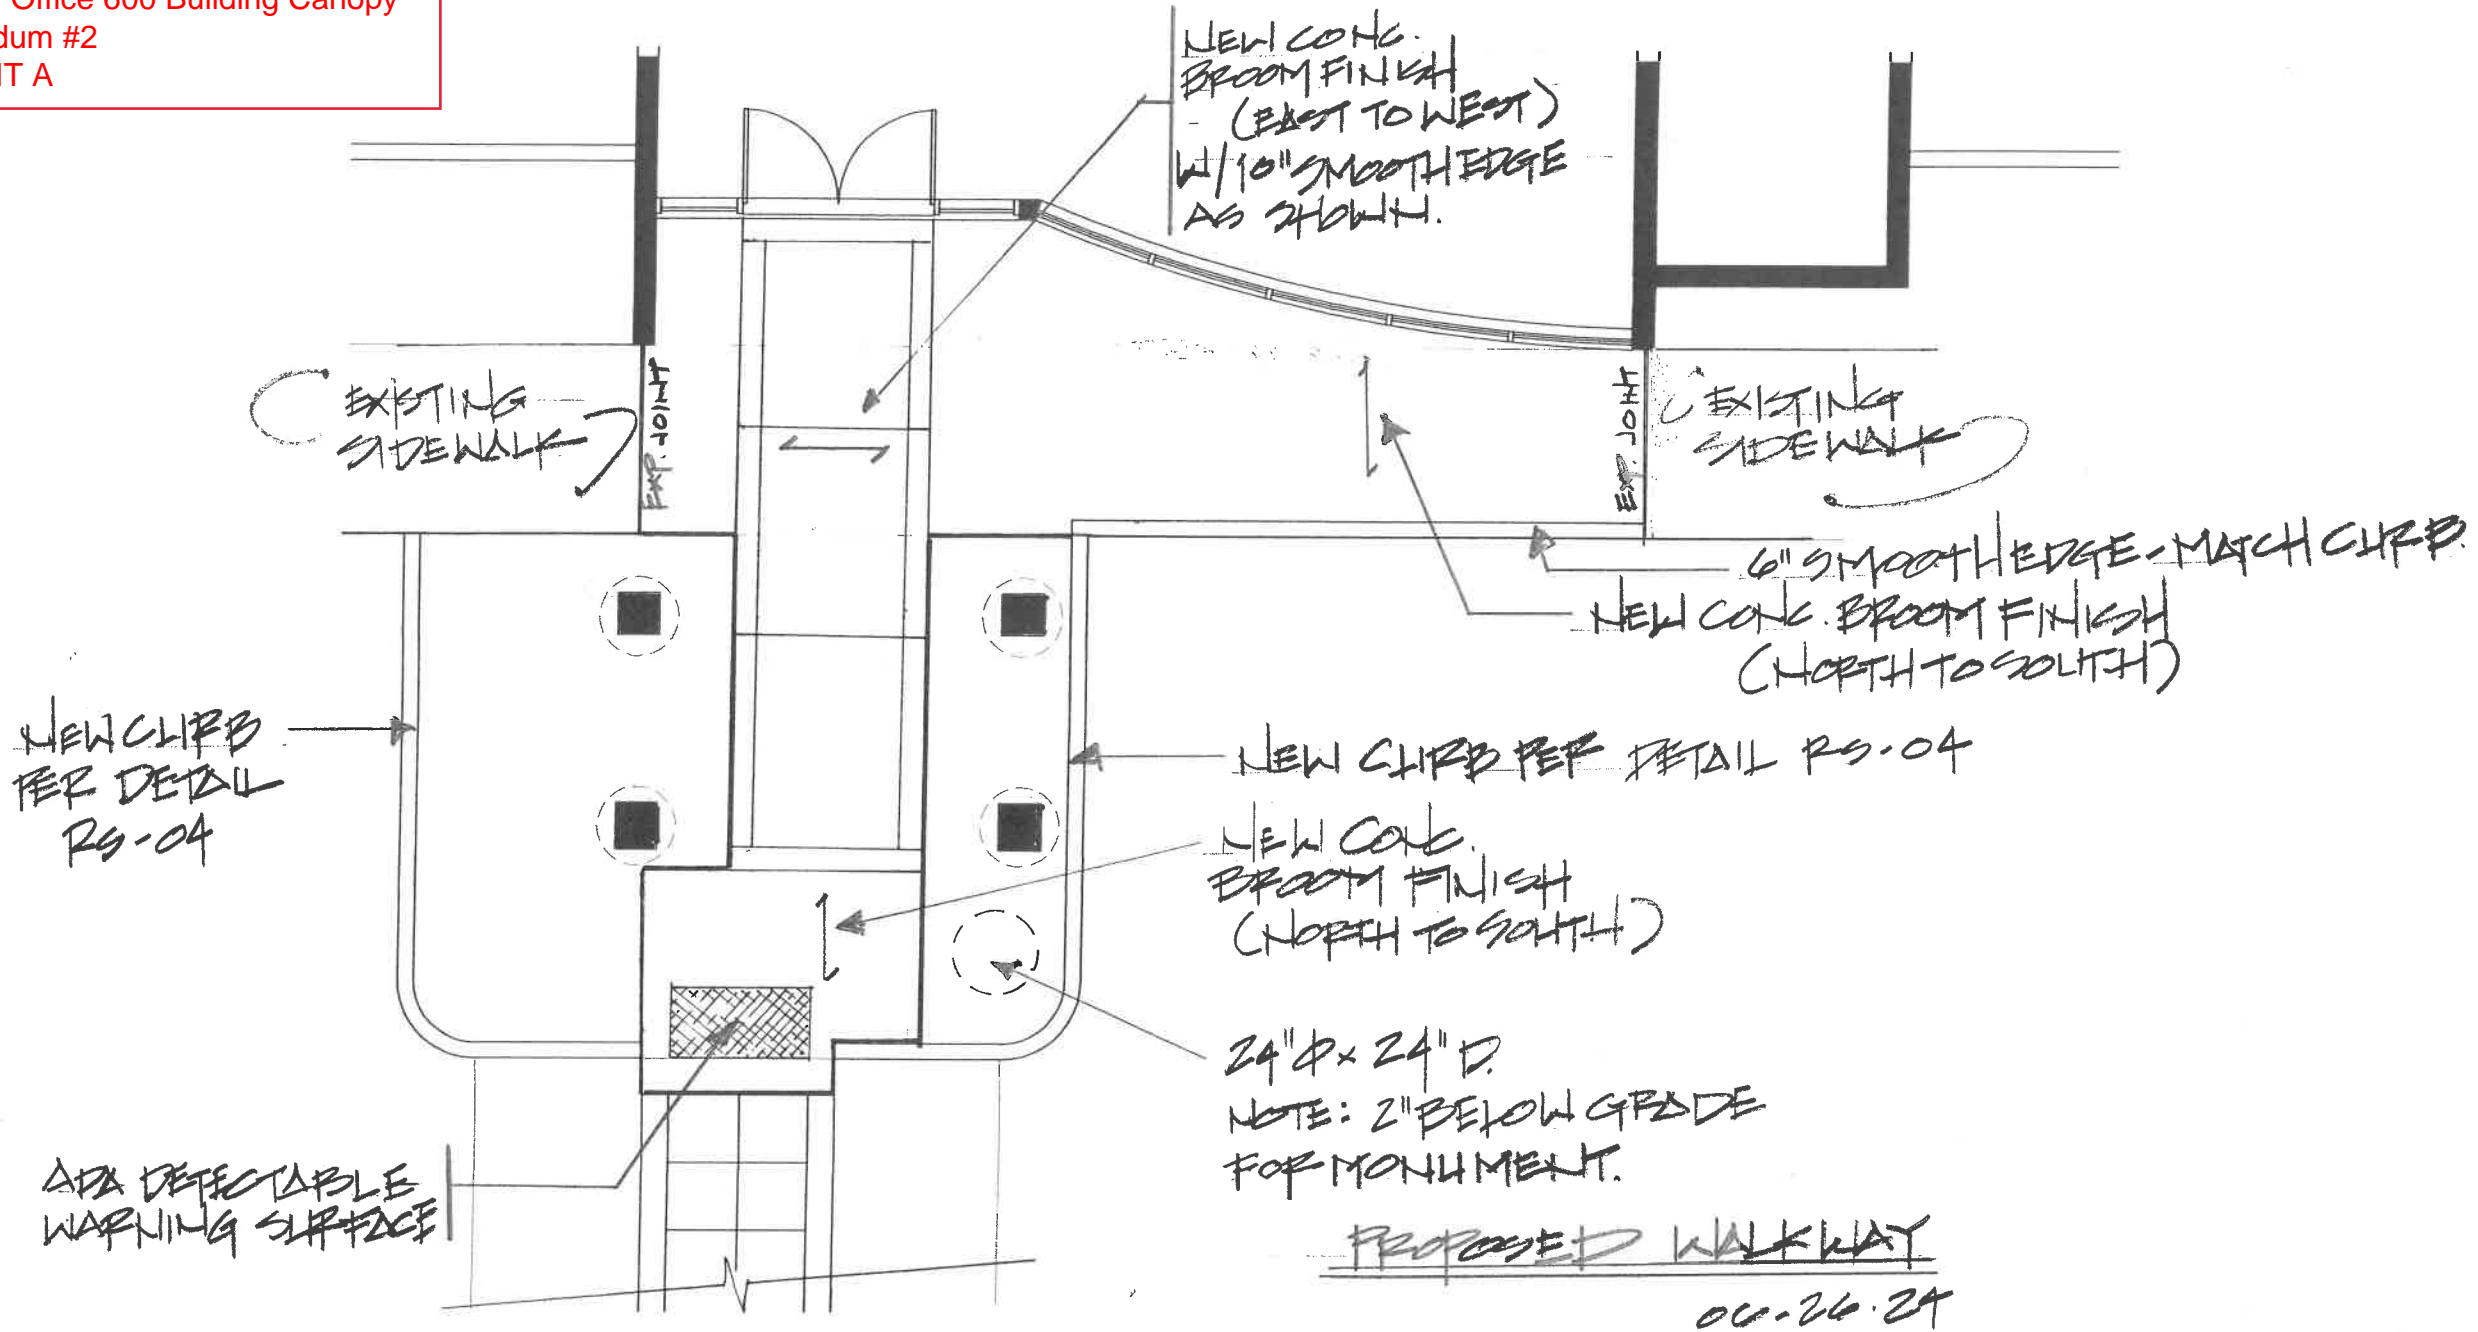 Office 600 Building Canopy
dum #2
IT A
NEW CONC.
BROOM FINISH
(EAST TO WEST)
W/10" SMOOTH EDGE
AS SHOWN.
EXISTING
SIDEWALK
EXP. JOINT
EXP. JOINT
EXISTING
SIDEWALK
6" SMOOTH EDGE-MATCH CURB.
NEW CONC. BROOM FINISH
(NORTH TO SOUTH)
NEW CURB
PER DETAIL
RS-04
NEW CURB PER DETAIL RS-04
NEW CONC.
BROOM FINISH
(NORTH TO SOUTH)
24"Φ x 24" D.
NOTE: 2" BELOW GRADE
FOR MONUMENT.
ADA DETECTABLE
WARNING SURFACE
PROPOSED WALKWAY
06-26-24